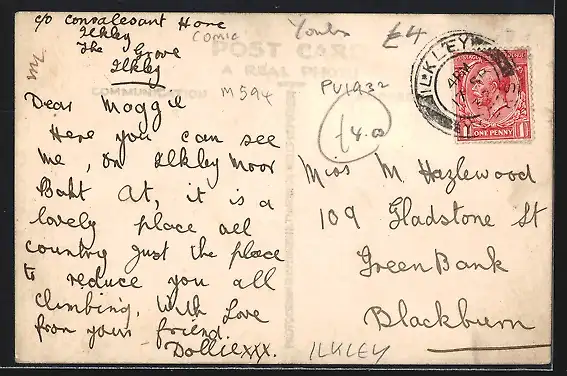 c/o Convalesant Home
Ilkley
The Grove
Ilkley
Comic
Yorks
£4
POST CARD
A REAL PHOTO
M594
PV1932
£4.00
ILKLEY
ONE PENNY
Dear Maggie
Here you can see
me, on Ilkley Moor
Baht At, it is a
lovely place all
country just the place
to reduce you all
climbing, with Love
from your friend.
Dollie xxx.
Miss M Hazlewood
109 Gladstone St
Green Bank
Blackburn
ILKLEY